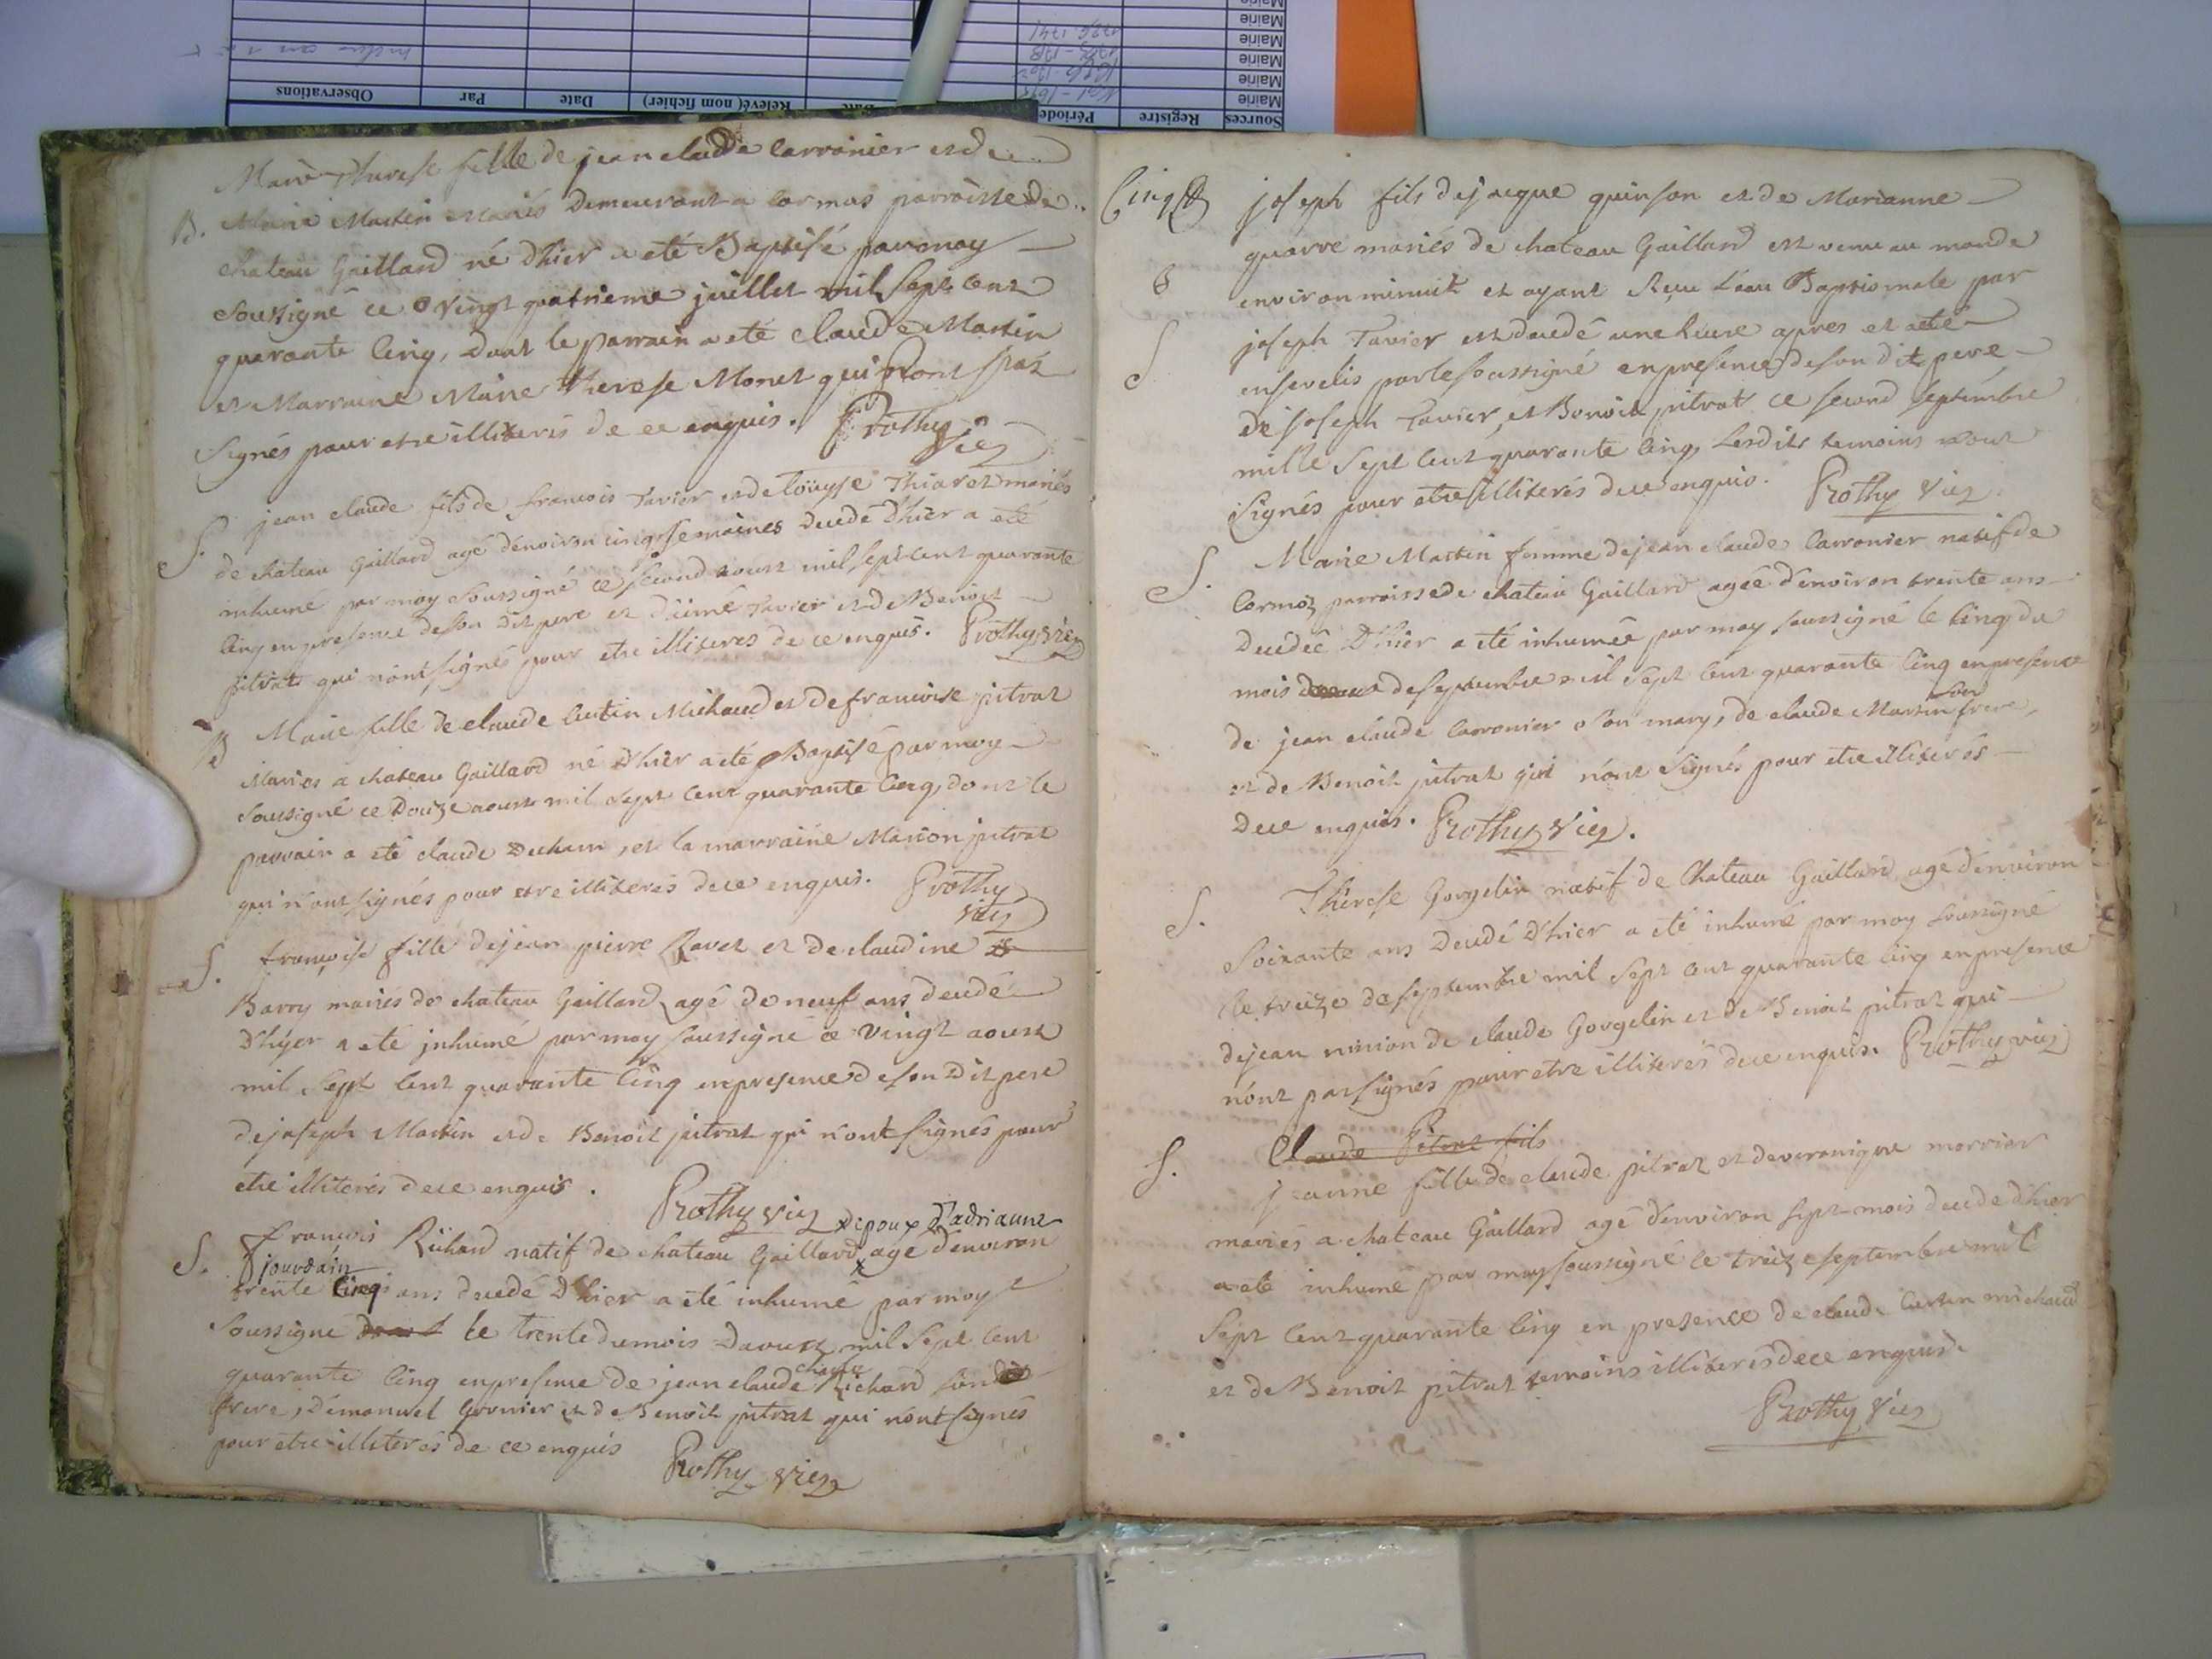 Sources Registre Période Date Relevé( nom fichier) Date Par Observations
Mairie
Mairie 1703-1718
Mairie 1726-1741
Mairie
Marie Therese fille de jean claude Carronier et de
B. Marie Martin mariés demeurant a Cormos parroisse de
chateau Gaillard né d'hier a eté Baptisé par moy
soussigné ce vingt quatrieme juillet mil sept cent
quarante cinq, dont le parrain a eté claude Martin
et Marraine Marie therese Monet qui n'ont pas
signés pour etre illiterés de ce enquis. Prothy
Vic
S. jean claude fils de francois Tavier et de Loüyse Thiaret mariés
de chateau Gaillard agé d'environ cinq semaines decedé d'hier a eté
inhumé par moy soussigné ce second aoust mil sept cent quarante
cinq en presence de son dit pere et d'aimé Tavier et de Benoit
pitrat qui n'ont signés pour etre illiteres de ce enquis. Prothy vic
B Marie fille de claude Custin Michaud et de francoise pitrat
Mariés a chateau Gaillard né d'hier a eté Baptisé par moy
soussigné ce douze aoust mil sept cent quarante cinq, dont le
parrain a eté claude , et la marraine Marion pitrat
qui n'ont signés pour etre illiterés de ce enquis. Prothy
vic
S. francoise fille de jean pierre Ravet et de claudine
Barry mariés de chateau Gaillard agé de neuf ans decedé
d'hyer a eté inhumé par moy soussigné ce vingt aoust
mil sept cent quarante cinq en presence de son dit pere
de joseph Martin et de Benoit pitrat qui n'ont signés pour
etre illiterés de ce enquis.
Prothy vic
depoux d'adrianne
S. francois Richard natif de chateau Gaillard x agé d'environ
jourdain
trente cinq ans decedé d'hier a eté inhumé par moy
soussigné le trente du mois daoust mil sept cent
quarante cinq en presence de jean claude Richard son
frere, d'emanuel Gornier et de Benoit pitrat qui n'ont signés
pour etre illiterés de ce enquis Prothy vic
Cinq joseph fils de jacque quinson et de Marianne
quarre mariés de chateau Gaillard est venu au monde
B environ minuit et ayant Reçu l'eau Baptismale par
S joseph Tavier est decedé une heure apres et a eté
ensevelis par le soussigné en presence de son dit pere
de joseph Tavier, et Benoit pitrat ce second septembre
mille sept cent quarante cinq, lesdits temoins n'ont
signés pour etre illiterés de ce enquis. Prothy vic
S. Marie Martin femme de jean claude Carronier natif de
Cormoz parroisse de chateau Gaillard agée d'environ trente ans
decedée d'hier a eté inhumée par moy soussigné le cinq du
mois de septembre mil sept cent quarante cinq en presence
de jean claude Carronier son mary, de claude Martin son frere,
et de Benoit pitrat qui n'ont signés pour etre illiterés
de ce enquis. Prothy vic.
S. Therese Gorgelin natif de Chateau Gaillard agé d'environ
soixante ans decedé d'hier a eté inhumé par moy soussigné
le treize de septembre mil sept cent quarante cinq en presence
de jean de claude Gorgelin et de Benoit pitrat qui
n'ont pas signés pour etre illiterés de ce enquis. Prothy vic
Claude Pitrat fils
S. jeanne fille de claude pitrat et de veronique morrier
mariés a chateau Gaillard agé d'environ sept mois decedé d'hier
a eté inhumé par moy soussigné le treize septembre mil
sept cent quarante cinq en presence de claude Custin michaud
et de Benoit pitrat temoins illiterés de ce enquis.
Prothy vic